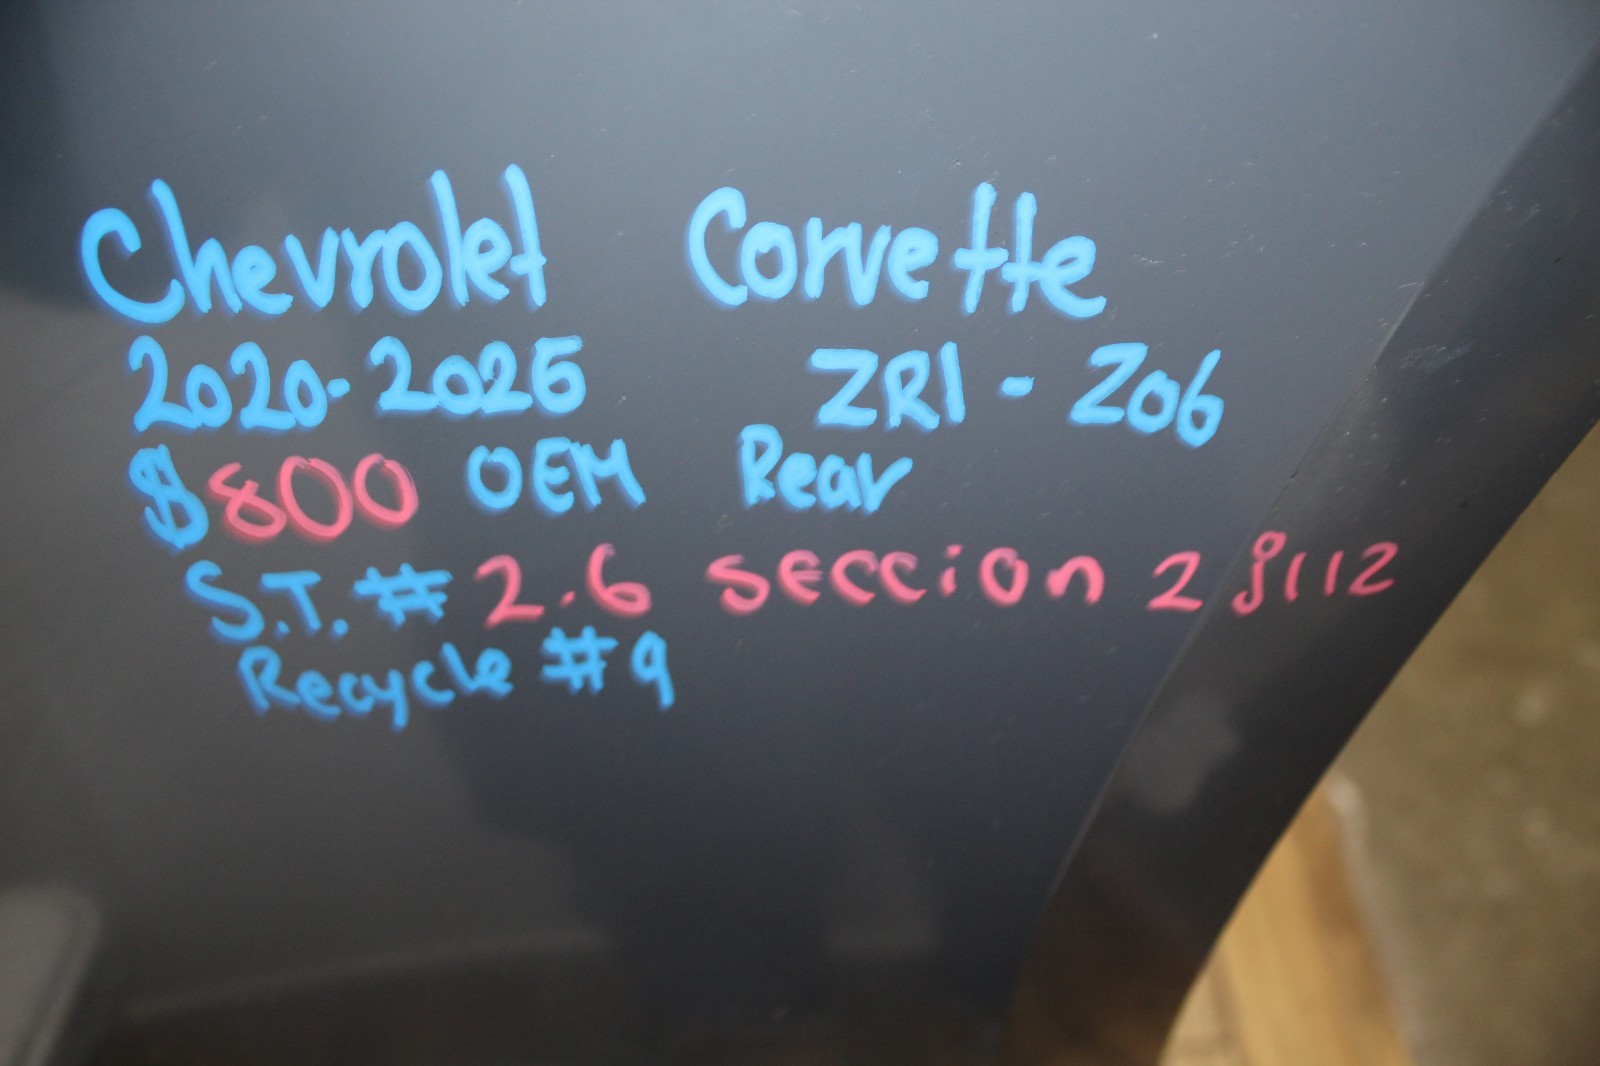 Chevrolet Corvette
2020-2025 ZR1 - Z06
$800 OEM Rear
S.T. # 2.6 seccion 2
Recycle #9